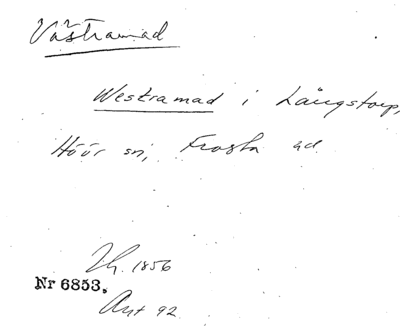 Västramad
Westramad i Långstorp,
Höör sn, Frosta hd
Lh. 1856
Nr 6853.
Avt 92